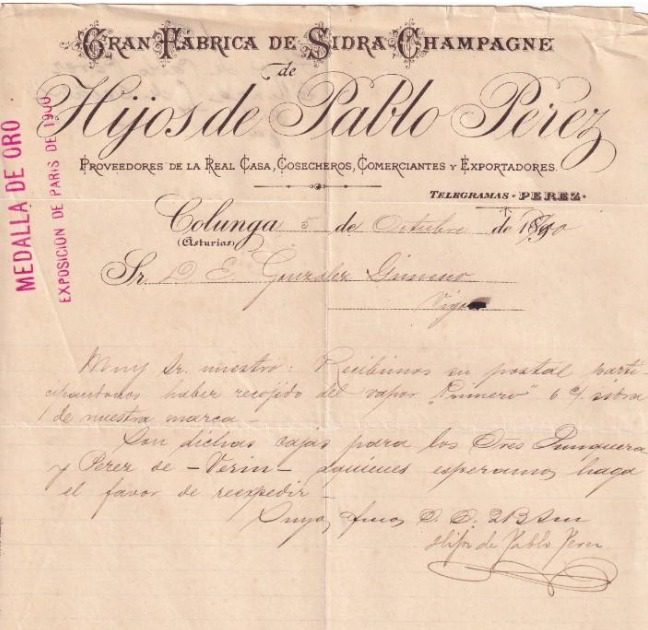 GRAN FÁBRICA DE SIDRA CHAMPAGNE
de
Hijos de Pablo Perez
PROVEEDORES DE LA REAL CASA, COSECHEROS, COMERCIANTES Y EXPORTADORES.
TELEGRAMAS - PEREZ -
MEDALLA DE ORO
EXPOSICIÓN DE PARIS DE 1900
Colunga 5 de Octubre de
(Asturias)
Sr. D. E. Gonzalez
Vigo
Muy Sr. nuestro: Recibimos su postal parti-
cipandonos haber recojido del vapor "Primero" 6 c/ sidra
de nuestra marca.-
Son dichas cajas para los Sres
y Perez de - Verin - a quienes esperamos haga
el favor de reexpedir -
Hijos de Pablo Perez